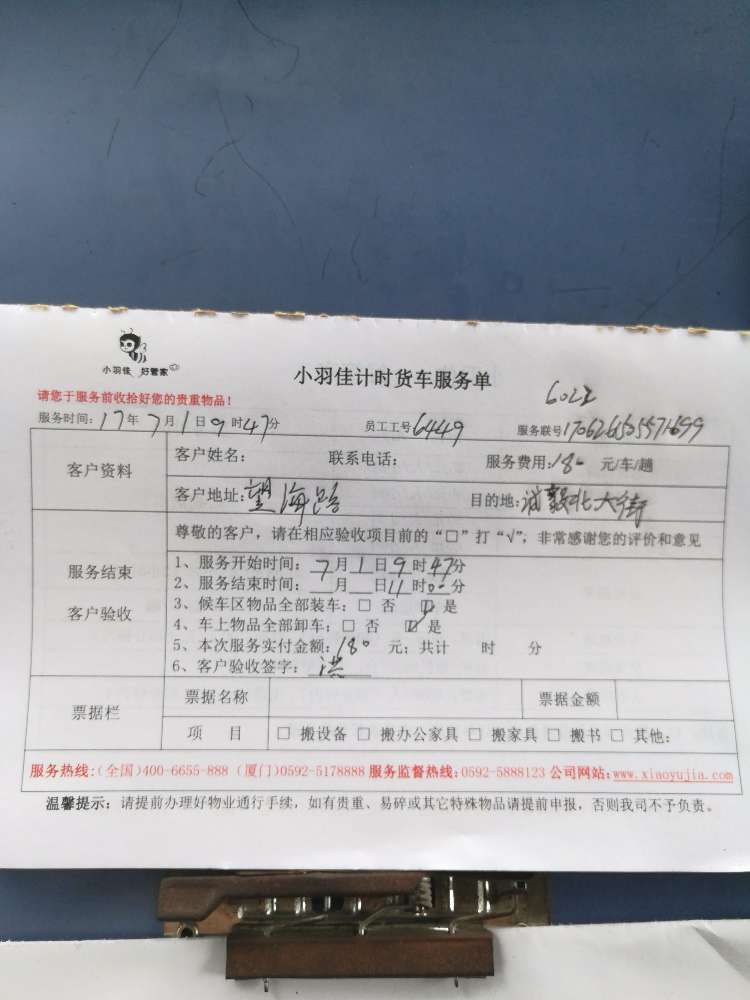 小羽佳 好管家
小羽佳计时货车服务单
请您于服务前收拾好您的贵重物品！
服务时间：17年7月1日9时47分 员工工号6449 服务联号
客户资料
客户姓名： 联系电话： 服务费用：180 元/车/趟
客户地址：望海路 目的地：诚毅北大街
尊敬的客户，请在相应验收项目前的“□”打“√”，非常感谢您的评价和意见
服务结束
客户验收
1、服务开始时间：7月1日9时47分
2、服务结束时间：__月__日11时00分
3、候车区物品全部装车：□ 否 ☑ 是
4、车上物品全部卸车：□ 否 ☑ 是
5、本次服务实付金额：180 元；共计 时 分
6、客户验收签字：洪
票据栏
票据名称 票据金额
项 目 □ 搬设备 □ 搬办公家具 □ 搬家具 □ 搬书 □ 其他：
服务热线：(全国)400-6655-888 (厦门)0592-5178888 服务监督热线：0592-5888123 公司网站：www.xiaoyujia.com
温馨提示：请提前办理好物业通行手续，如有贵重、易碎或其它特殊物品请提前申报，否则我司不予负责。